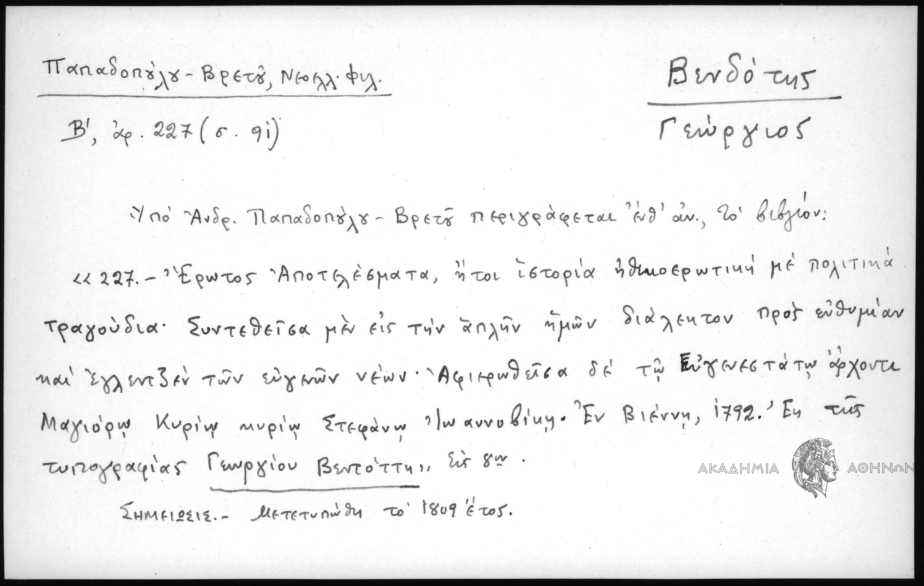 Παπαδοπούλου - Βρετοῦ, Νεοελλ. Φιλ.
Β', ἀρ. 227 (σ. 91)
Βενδότης
Γεώργιος
Ὑπό Ἀνδρ. Παπαδοπούλου - Βρετοῦ περιγράφεται ἔνθ' ἀν., τό βιβλίον:
«227. - Ἔρωτος Ἀποτελέσματα, ἤτοι ἱστορία ἠθικοερωτική μέ πολιτικά
τραγούδια. Συντεθεῖσα μὲν εἰς τήν ἁπλῆν ἡμῶν διάλεκτον πρὸς εὐθυμίαν
καί ἐγλεντζέν τῶν εὐγενῶν νέων. Ἀφιερωθεῖσα δέ τῷ Εὐγενεστάτῳ ἄρχοντι
Μαγιόρῳ Κυρίῳ κυρίῳ Στεφάνῳ Ἰωαννοβίκῃ. Ἐν Βιέννῃ, 1792. Ἐκ τῆς
τυπογραφίας Γεωργίου Βεντόττη,, Εἰς 8ον.
Σημείωσις. - Μετετυπώθη τό 1809 ἔτος.
ΑΚΑΔΗΜΙΑ ΑΘΗΝΩΝ